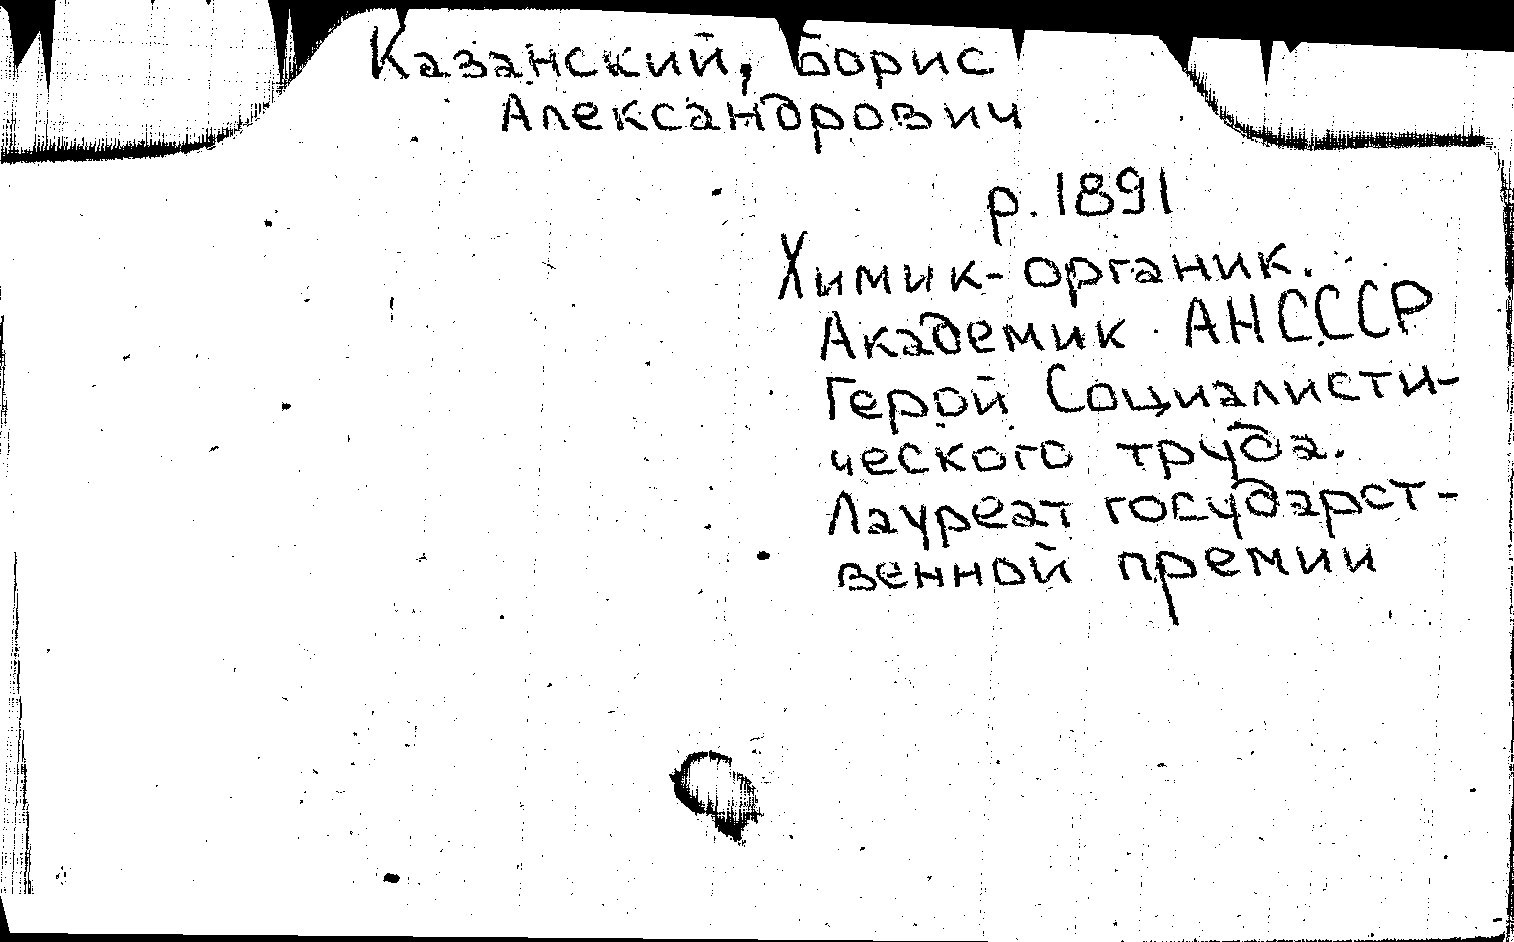 Казанский, Борис
Александрович
р. 1891
Химик-органик.
Академик АНСССР
Герой Социалисти-
ческого труда.
Лауреат государст-
венной премии